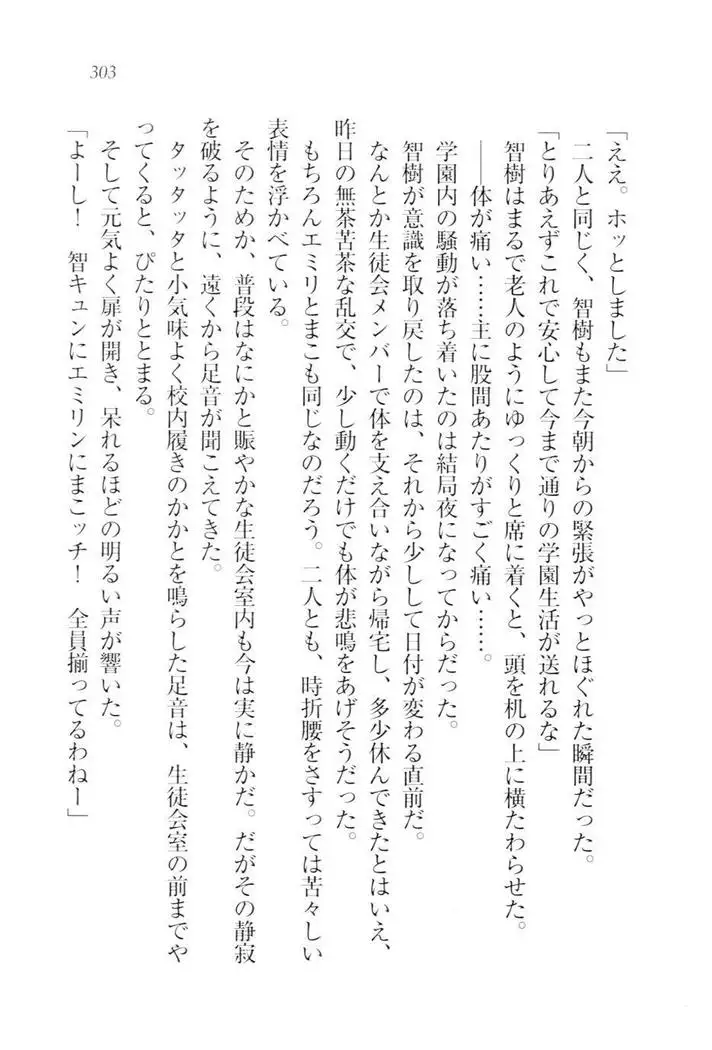 303
「ええ。ホッとしました」
二人と同じく、智樹もまた今朝からの緊張がやっとほぐれた瞬間だった。
「とりあえずこれで安心して今まで通りの学園生活が送れるな」
智樹はまるで老人のようにゆっくりと席に着くと、頭を机の上に横たわらせた。
――体が痛い……主に股間あたりがすごく痛い……。
学園内の騒動が落ち着いたのは結局夜になってからだった。
智樹が意識を取り戻したのは、それから少しして日付が変わる直前だ。
なんとか生徒会メンバーで体を支え合いながら帰宅し、多少休んできたとはいえ、
昨日の無茶苦茶な乱交で、少し動くだけでも体が悲鳴をあげそうだった。
もちろんエミリとまこも同じなのだろう。二人とも、時折腰をさすっては苦々しい
表情を浮かべている。
そのためか、普段はなにかと賑やかな生徒会室内も今は実に静かだ。だがその静寂
を破るように、遠くから足音が聞こえてきた。
タッタッタと小気味よく校内履きのかかとを鳴らした足音は、生徒会室の前までや
ってくると、ぴたりととまる。
そして元気よく扉が開き、呆れるほどの明るい声が響いた。
「よーし！　智キュンにエミリンにまこッチ！　全員揃ってるわねー」